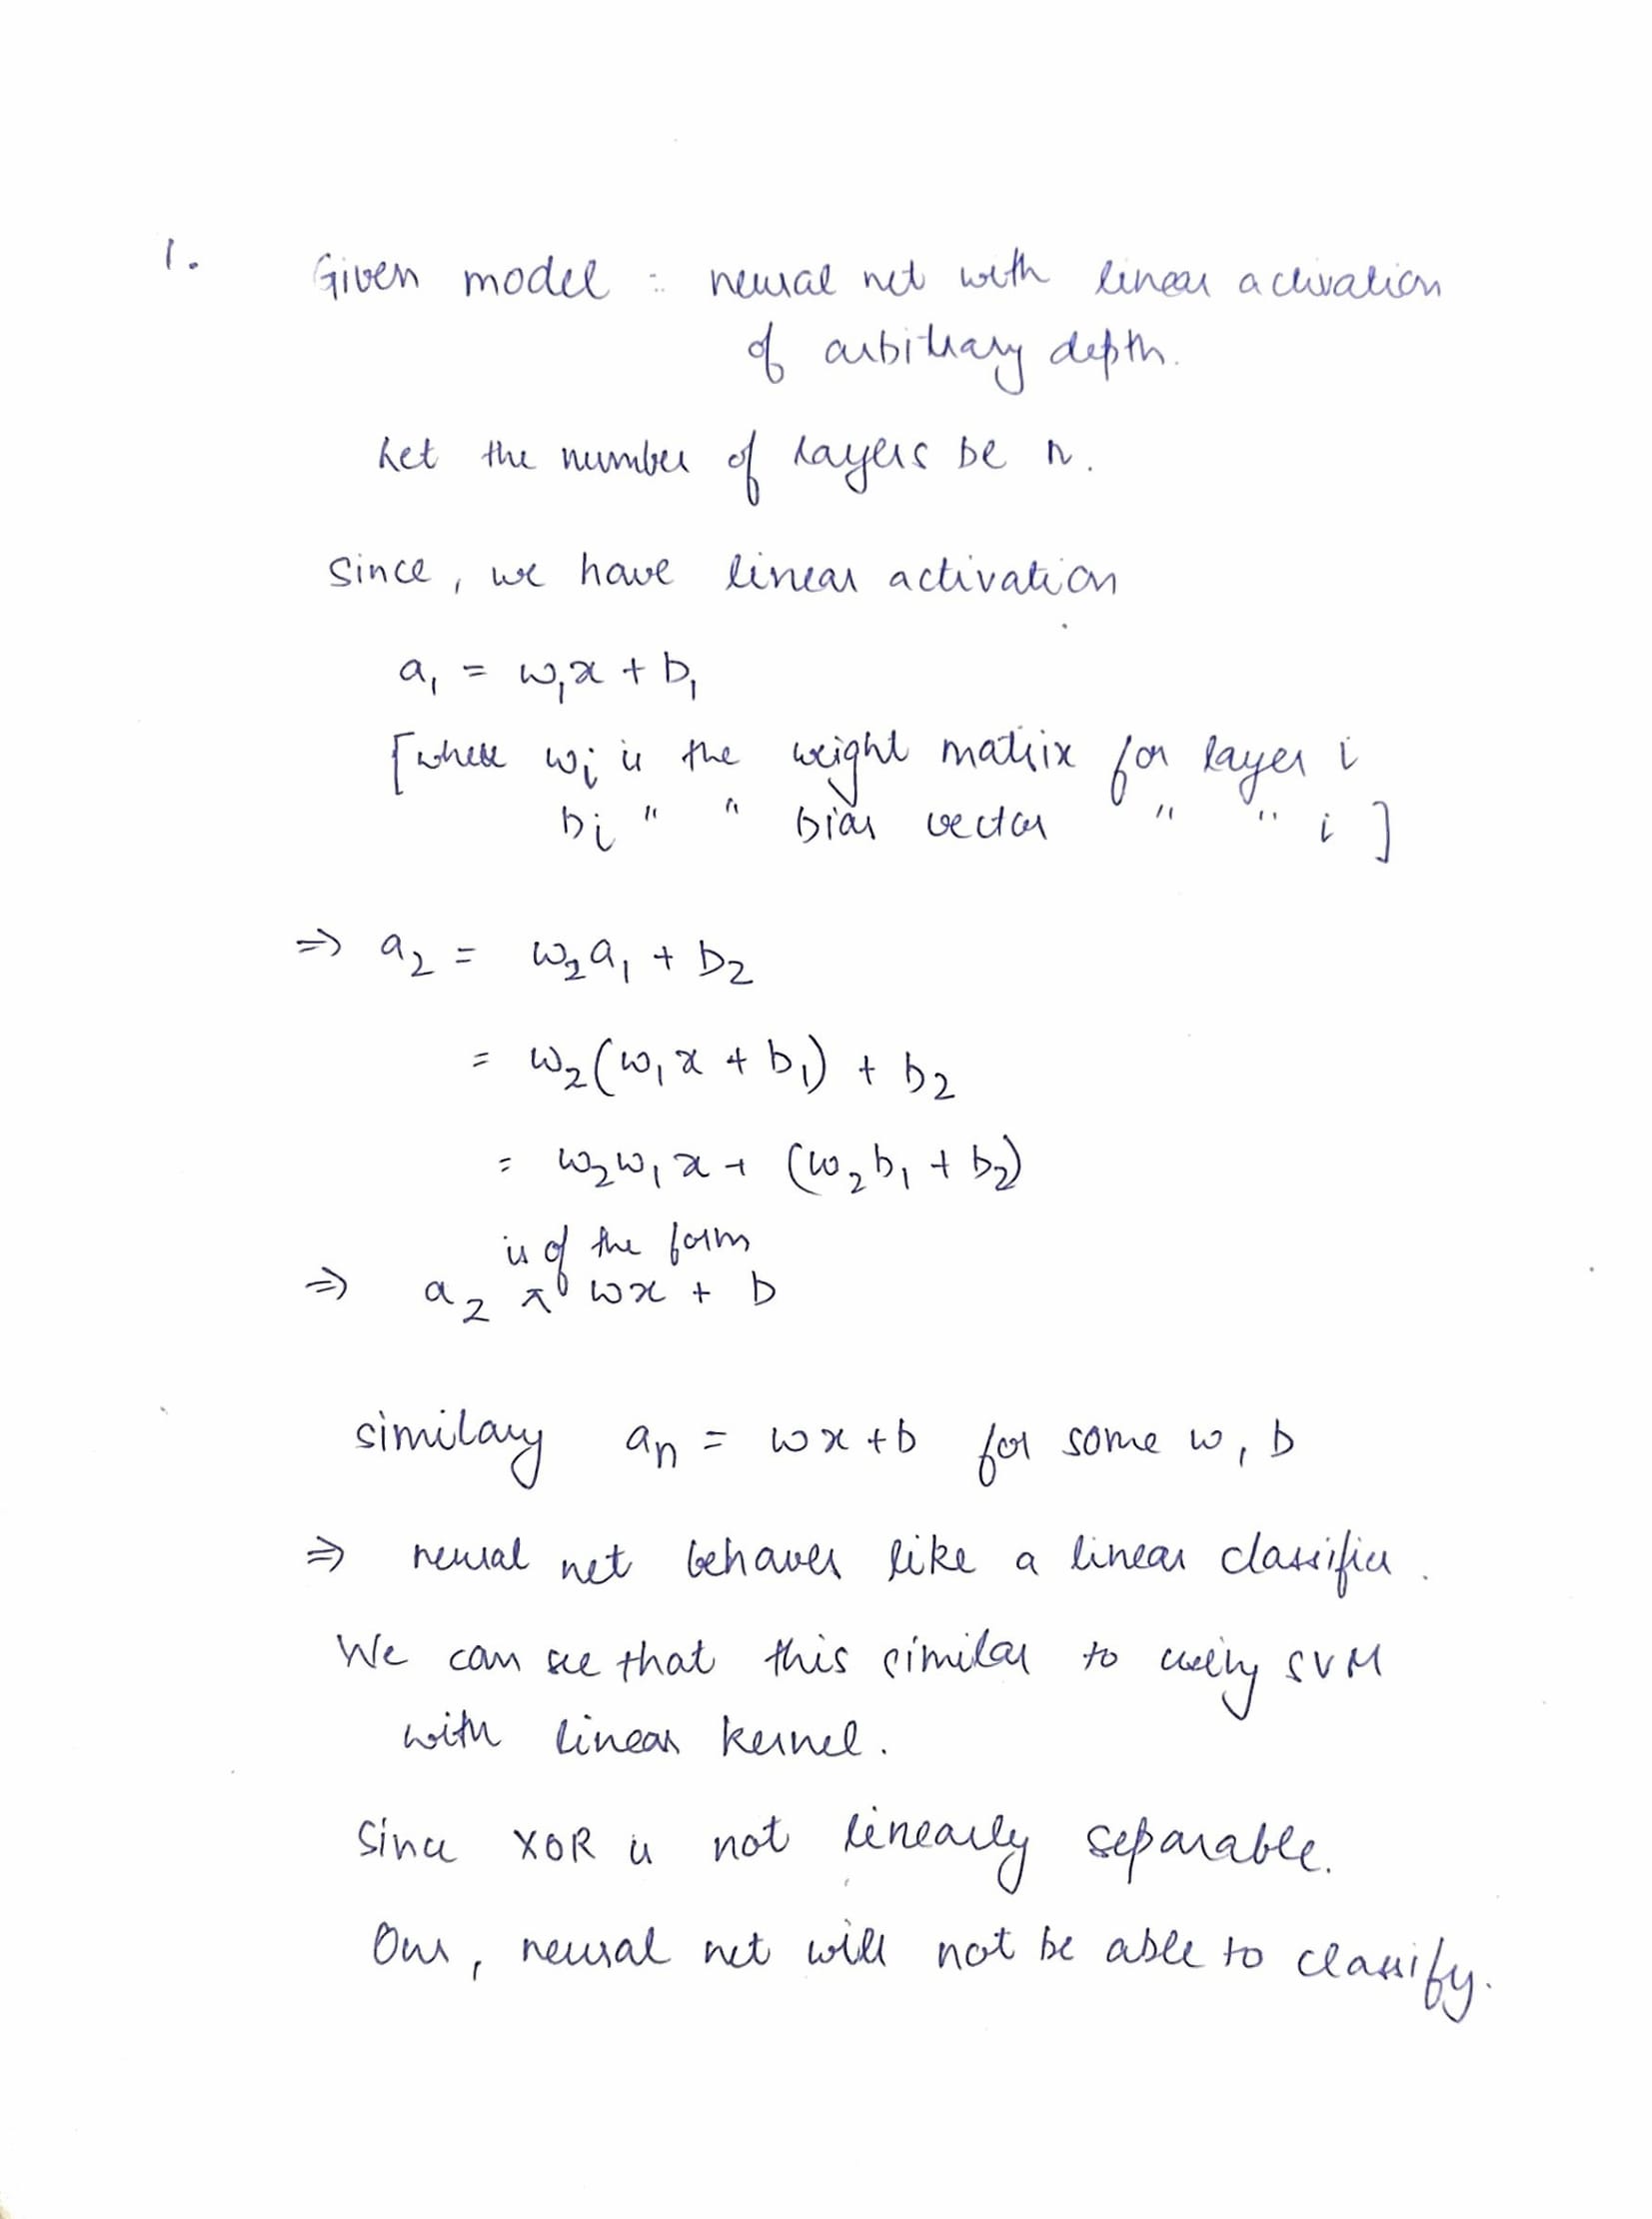 1. Given model : neural net with linear activation
of arbitrary depth.
Let the number of layers be n.
Since, we have linear activation
a₁ = w₁x + b₁
[where wᵢ is the weight matrix for layer i
bᵢ " " bias vector " " i ]
⇒ a₂ = w₂a₁ + b₂
= w₂(w₁x + b₁) + b₂
= w₂w₁x + (w₂b₁ + b₂)
is of the form
⇒ a₂ ^ wx + b
similary aₙ = wx + b for some w, b
⇒ neural net behaves like a linear classifier.
We can see that this similar to using SVM
with linear kernel.
Since XOR is not linearly separable.
Our, neural net will not be able to classify.